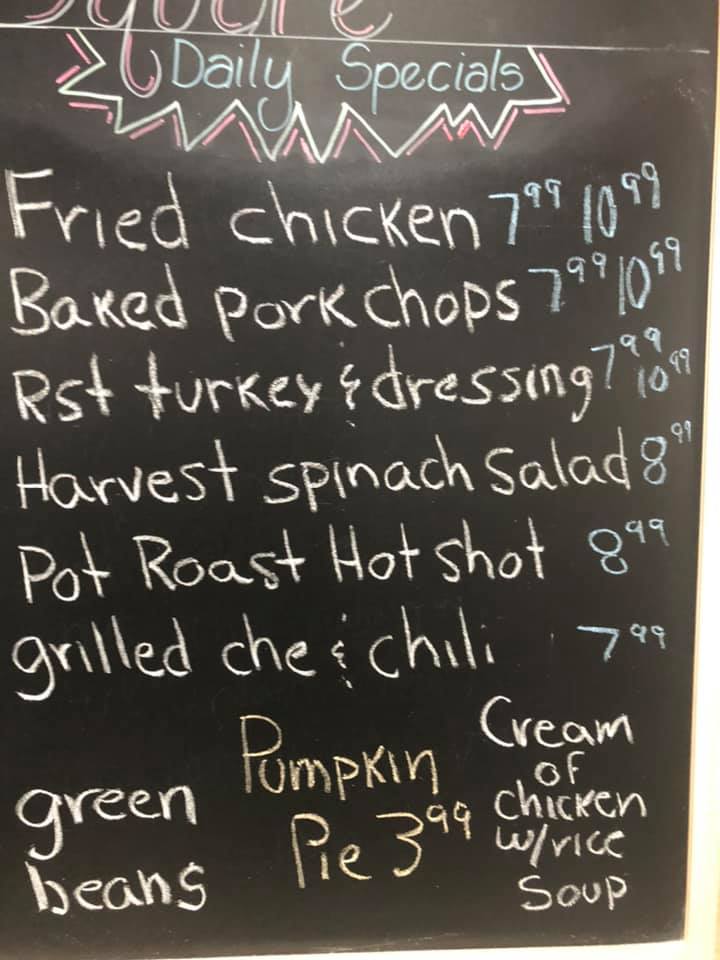 Daily Specials
Fried chicken 7.99 10.99
Baked pork chops 7.99 10.99
Rst turkey & dressing 7.99 10.99
Harvest spinach Salad 8.99
Pot Roast Hot shot 8.99
grilled che & chili 7.99
green
beans
Pumpkin
Pie 3.99
Cream
of
chicken
w/rice
Soup